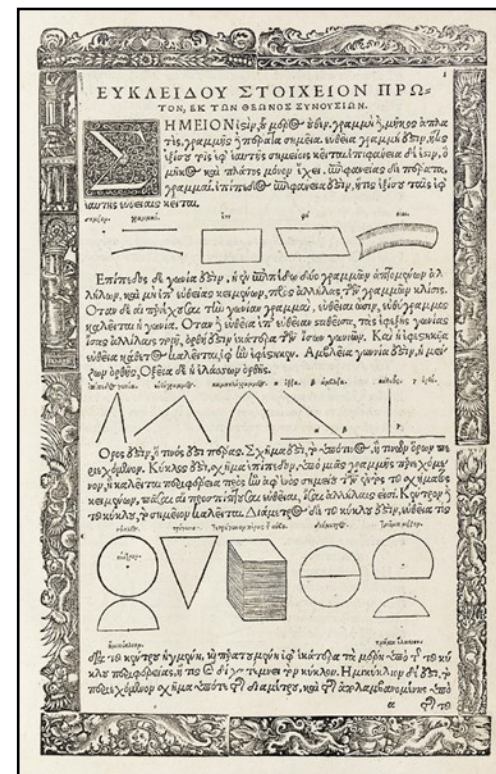 ΕΥΚΛΕΙΔΟΥ ΣΤΟΙΧΕΙΟΝ ΠΡΩ-
ΤΟΝ, ΕΚ ΤΩΝ ΘΕΩΝΟΣ ΣΥΝΟΥΣΙΩΝ.
ΣΗΜΕΙΟΝ ἐστιν, οὗ μέρος οὐθέν. γραμμὴ δὲ, μῆκος ἀπλα
τές. γραμμῆς δὲ πέρατα σημεῖα. εὐθεῖα γραμμή ἐστιν, ἥτις
ἐξ ἴσου τοῖς ἐφ' ἑαυτῆς σημείοις κεῖται. ἐπιφάνεια δέ ἐστιν, ὃ
μῆκος καὶ πλάτος μόνον ἔχει. ἐπιφανείας δὲ πέρατα,
γραμμαί. ἐπίπεδος ἐπιφάνειά ἐστιν, ἥτις ἐξ ἴσου ταῖς ἐφ'
ἑαυτῆς εὐθείαις κεῖται.
σημεῖον. γραμμαί.
Ἐπίπεδος δὲ γωνία ἐστιν, ἡ ἐν ἐπιπέδῳ δύο γραμμῶν ἁπτομένων ἀλ
λήλων, καὶ μὴ ἐπ' εὐθείας κειμένων, πρὸς ἀλλήλας τῶν γραμμῶν κλίσις.
Ὅταν δὲ αἱ περιέχουσαι τὴν γωνίαν γραμμαὶ, εὐθεῖαι ὦσιν, εὐθύγραμμος
καλεῖται ἡ γωνία. Ὅταν δὲ εὐθεῖα ἐπ' εὐθεῖαν σταθεῖσα, τὰς ἐφεξῆς γωνίας
ἴσας ἀλλήλαις ποιῇ, ὀρθή ἐστιν ἑκατέρα τῶν ἴσων γωνιῶν. Καὶ ἡ ἐφεστηκυῖα
εὐθεῖα κάθετος καλεῖται, ἐφ' ἣν ἐφέστηκεν. Ἀμβλεῖα γωνία ἐστιν, ἡ μεί
ζων ὀρθῆς, Ὀξεῖα δὲ ἡ ἐλάσσων ὀρθῆς.
ἐπίπεδος γωνία. εὐθύγραμμος. β ἀμβλεῖα. κάθετος. γ ὀρθή.
α β γ
Ὅρος ἐστιν, ὅ τινός ἐστι πέρας. Σχῆμά ἐστι, τὸ ὑπό τινος, ἤ τινων ὅρων πε
ριεχόμενον. Κύκλος ἐστὶ, σχῆμα ἐπίπεδον, ὑπὸ μιᾶς γραμμῆς περιεχόμε
νον, ἣ καλεῖται περιφέρεια, πρὸς ἣν ἀφ' ἑνὸς σημείου τῶν ἐντὸς τοῦ σχήματος
κειμένων, πᾶσαι αἱ προσπίπτουσαι εὐθεῖαι, ἴσαι ἀλλήλαις εἰσί. Κέντρον δὲ
τοῦ κύκλου, τὸ σημεῖον καλεῖται. Διάμετρος δὲ τοῦ κύκλου ἐστὶν, εὐθεῖά τις
κύκλος. τρίγωνον. διάμετρος. τμῆμα μεῖζον.
κέντρον.
ἡμικύκλιον. τμῆμα ἔλαττον.
διὰ τοῦ κέντρου ἠγμένη, καὶ περατουμένη ἐφ' ἑκάτερα τὰ μέρη ὑπὸ τῆς τοῦ κύ
κλου περιφερείας, ἥτις καὶ δίχα τέμνει τὸν κύκλον. Ἡμικύκλιον δέ ἐστι, τὸ
περιεχόμενον σχῆμα ὑπό τε τῆς διαμέτρου, καὶ τῆς ἀπολαμβανομένης ὑπὸ
α τῆς τοῦ